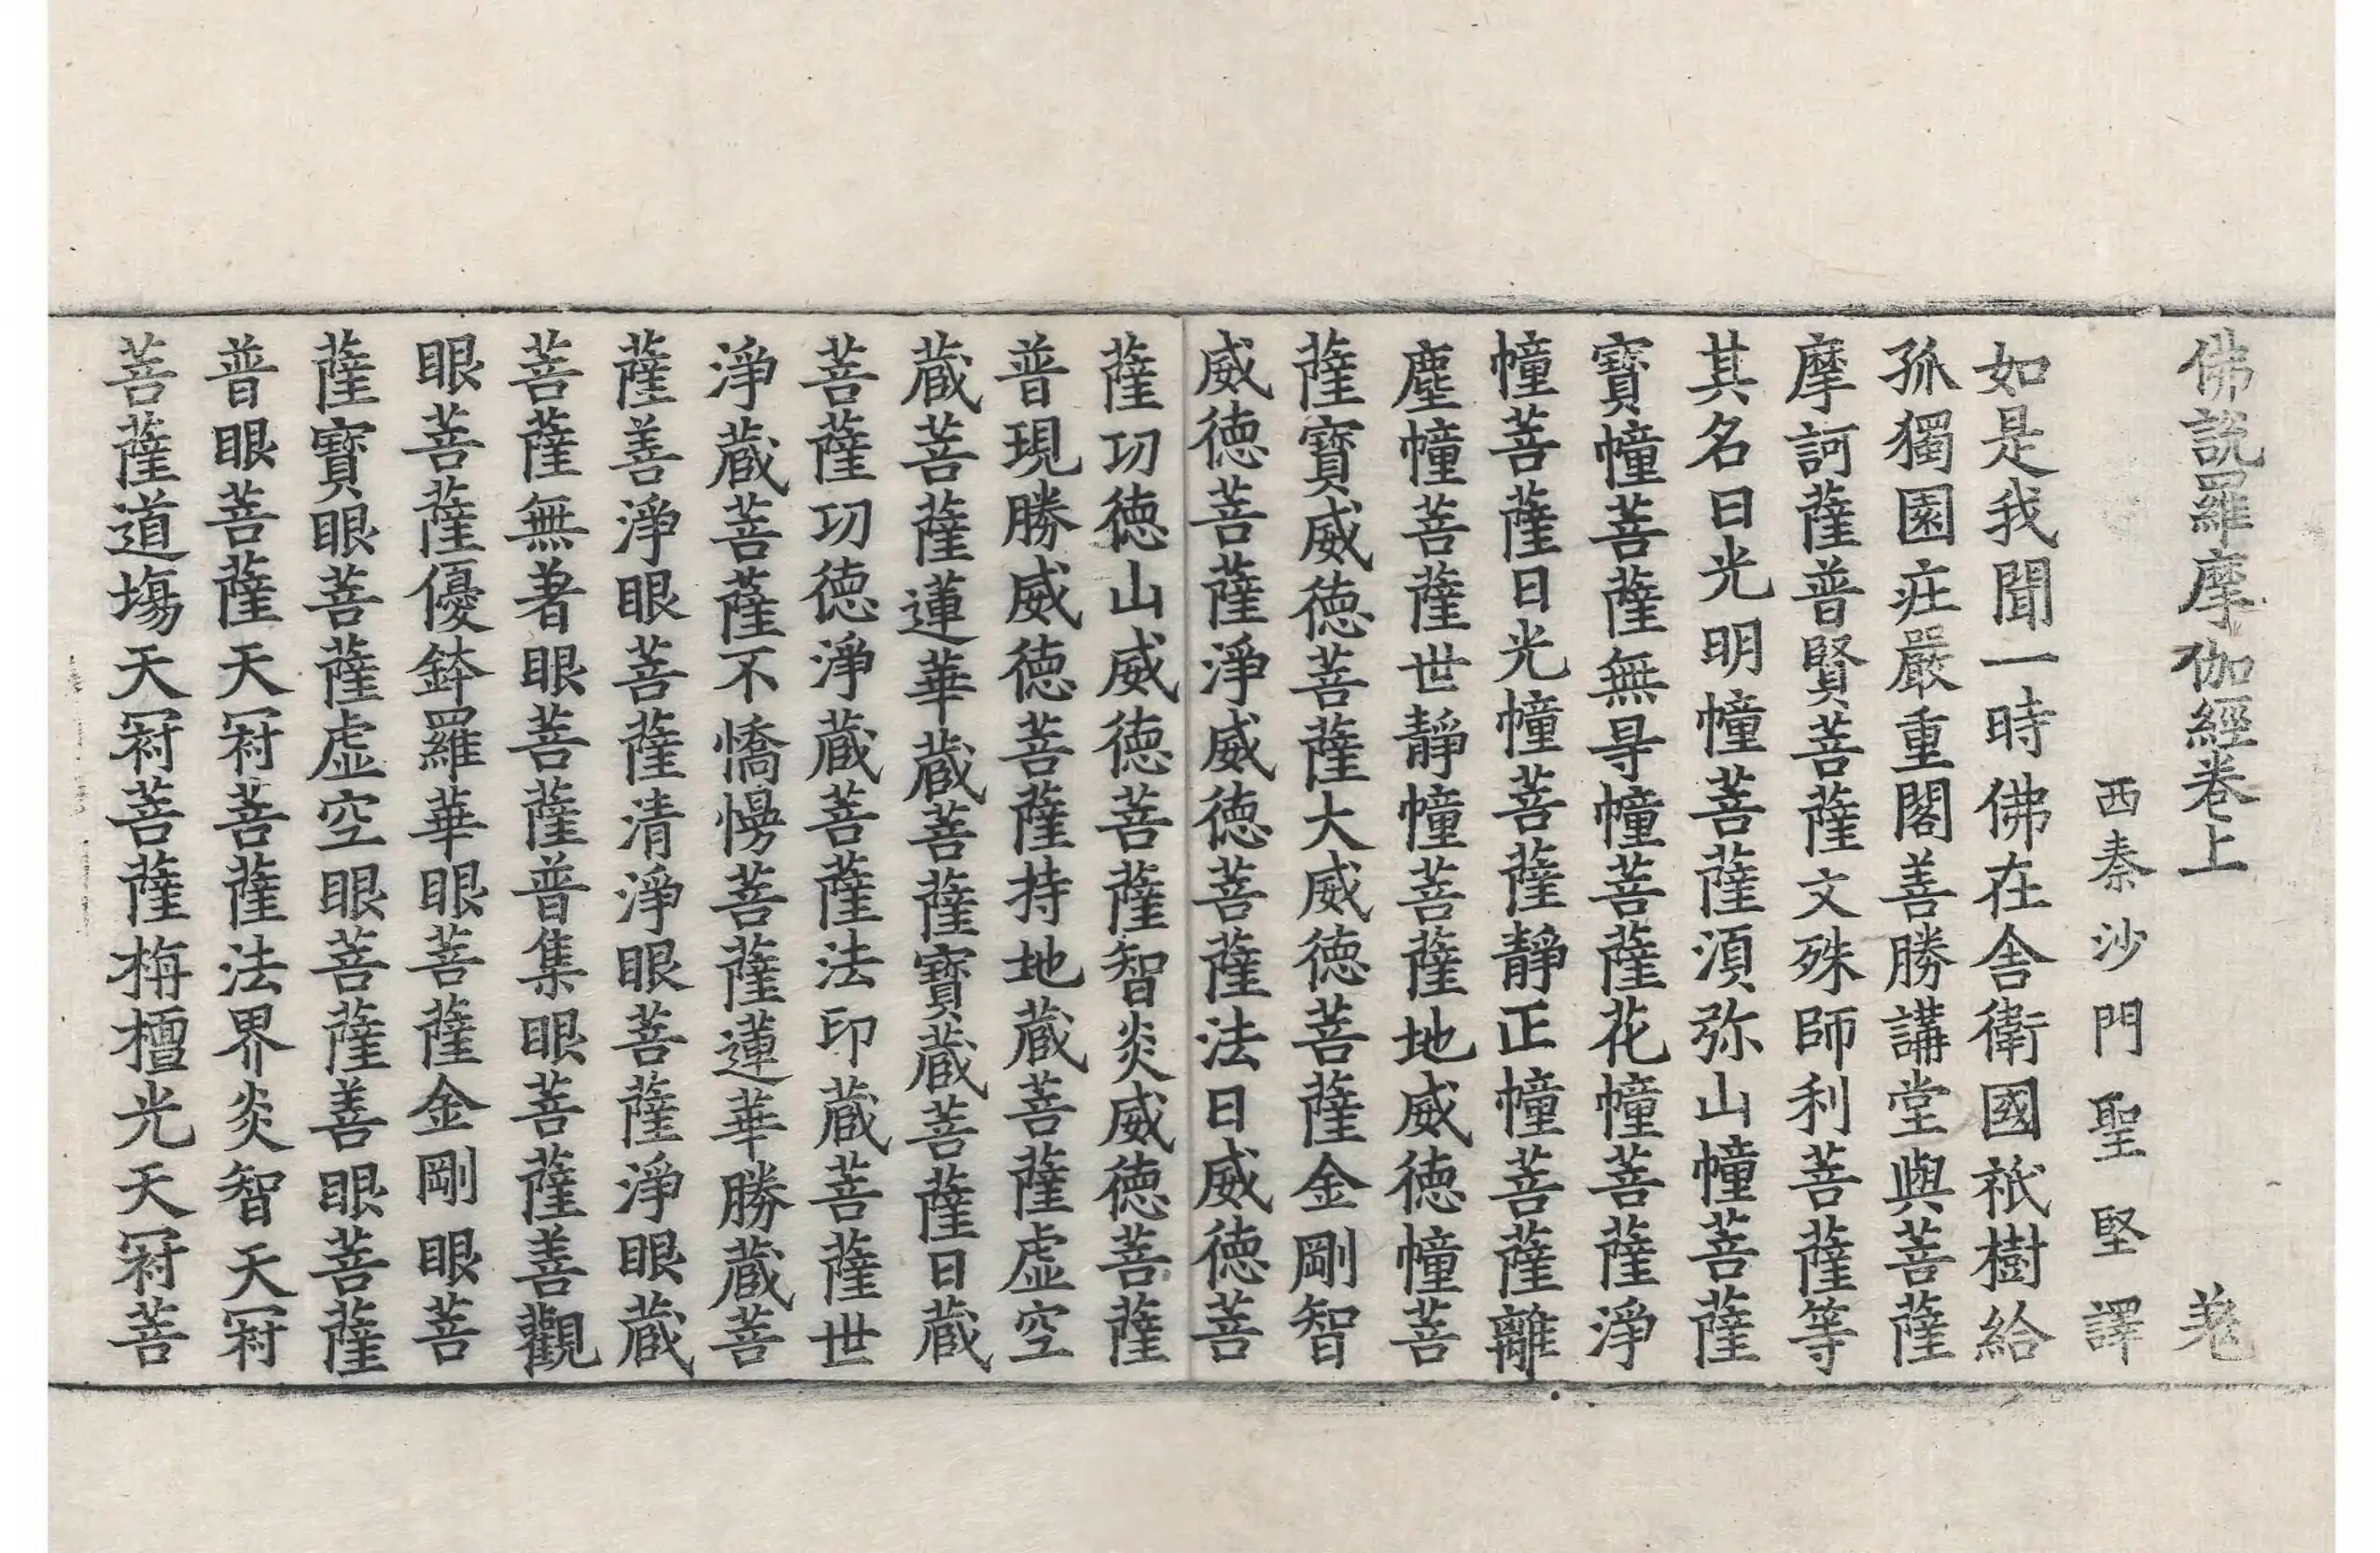 佛說羅摩伽經卷上 羌
西秦沙門聖堅譯
如是我聞一時佛在舎衛國祇樹給
孤獨園庄嚴重閣善勝講堂與菩薩
摩訶薩普賢菩薩文殊師利菩薩等
其名曰光明幢菩薩湏弥山幢菩薩
寶幢菩薩無㝵幢菩薩花幢菩薩淨
幢菩薩日光幢菩薩靜正幢菩薩離
塵幢菩薩世靜幢菩薩地威徳幢菩
薩寶威徳菩薩大威徳菩薩金剛智
威徳菩薩淨威徳菩薩法日威徳菩
薩功徳山威徳菩薩智炎威徳菩薩
普現勝威徳菩薩持地蔵菩薩虚空
蔵菩薩蓮華蔵菩薩寶蔵菩薩日蔵
菩薩功徳淨蔵菩薩法印蔵菩薩世
淨蔵菩薩不憍慢菩薩蓮華勝蔵菩
薩善淨眼菩薩清淨眼菩薩淨眼蔵
菩薩無著眼菩薩普集眼菩薩善觀
眼菩薩優鉢羅華眼菩薩金剛眼菩
薩寶眼菩薩虚空眼菩薩善眼菩薩
普眼菩薩天冠菩薩法界炎智天冠
菩薩道塲天冠菩薩栴檀光天冠菩